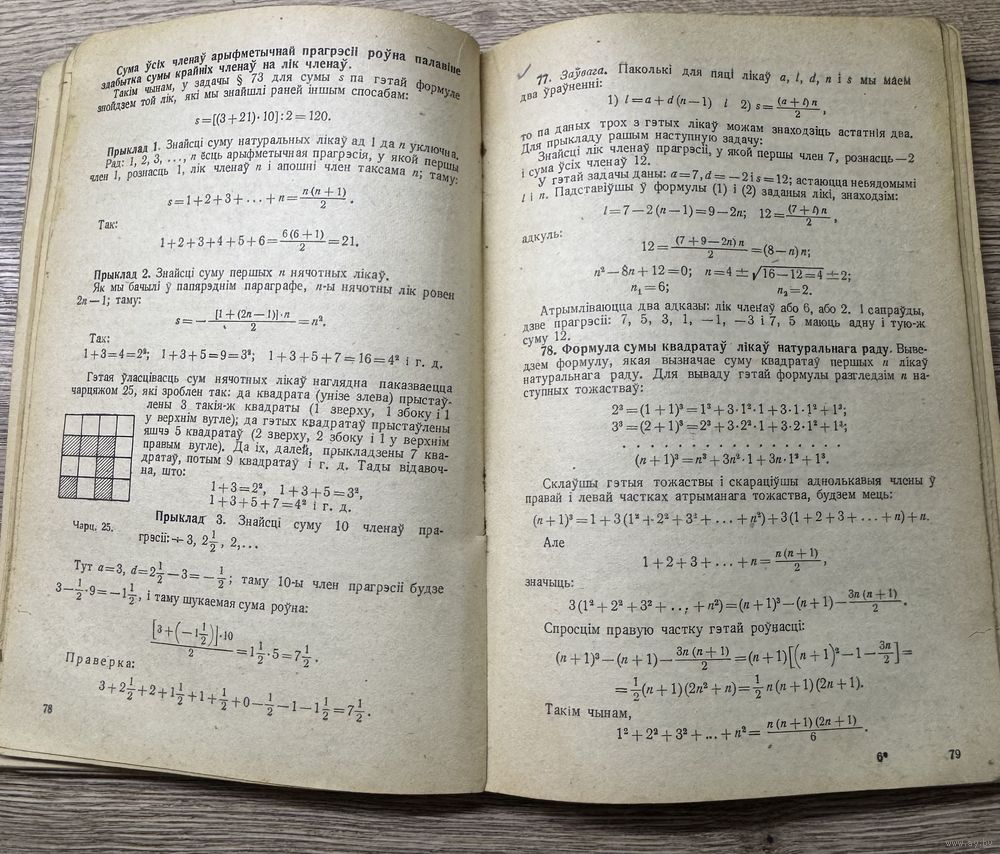 Сума ўсіх членаў арыфметычнай прагрэсіі роўна палавіне
здабытка сумы крайніх членаў на лік членаў.
Такім чынам, у задачы § 73 для сумы s па гэтай формуле
знойдзем той лік, які мы знайшлі раней іншым спосабам:
s=[(3+21)·10]:2=120.
Прыклад 1. Знайсці суму натуральных лікаў ад 1 да n уключна.
Рад: 1, 2, 3, ..., n ёсць арыфметычная прагрэсія, у якой першы
член 1, рознасць 1, лік членаў n і апошні член таксама n; таму:
s=1+2+3+...+n=n(n+1)/2.
Так:
1+2+3+4+5+6=6(6+1)/2=21.
Прыклад 2. Знайсці суму першых n нячотных лікаў.
Як мы бачылі ў папярэднім параграфе, n-ы нячотны лік ровен
2n—1; таму:
s=—[1+(2n—1)]·n/2=n².
Так:
1+3=4=2²; 1+3+5=9=3²; 1+3+5+7=16=4² і г. д.
Гэтая ўласцівасць сум нячотных лікаў наглядна паказваецца
чарцяжом 25, які зроблен так: да квадрата (унізе злева) прыстаў-
лены 3 такія-ж квадраты (1 зверху, 1 збоку і 1
у верхнім вугле); да гэтых квадратаў прыстаўлены
яшчэ 5 квадратаў (2 зверху, 2 збоку і 1 у верхнім
правым вугле). Да іх, далей, прыкладзены 7 ква-
дратаў, потым 9 квадратаў і г. д. Тады відавоч-
на, што:
1+3=2², 1+3+5=3²,
1+3+5+7=4² і г. д.
Чарц. 25.
Прыклад 3. Знайсці суму 10 членаў пра-
грэсіі: ÷ 3, 2 1/2, 2,...
Тут a=3, d=2 1/2—3=—1/2; таму 10-ы член прагрэсіі будзе
3—1/2·9=—1 1/2, і таму шукаемая сума роўна:
[3+(—1 1/2)]·10/2=1 1/2·5=7 1/2.
Праверка:
3+2 1/2+2+1 1/2+1+1/2+0—1/2—1—1 1/2=7 1/2.
78
77. Заўвага. Паколькі для пяці лікаў a, l, d, n і s мы маем
два ўраўненні:
1) l=a+d(n—1) і 2) s=(a+l)n/2,
то па даных трох з гэтых лікаў можам знаходзіць астатнія два.
Для прыкладу рашым наступную задачу:
Знайсці лік членаў прагрэсіі, у якой першы член 7, рознасць —2
і сума ўсіх членаў 12.
У гэтай задачы даны: a=7, d=—2 і s=12; астаюцца невядомымі
l і n. Падставіўшы ў формулы (1) і (2) заданыя лікі, знаходзім:
l=7—2(n—1)=9—2n; 12=(7+l)n/2,
адкуль:
12=(7+9—2n)n/2=(8—n)n;
n²—8n+12=0; n=4±√16—12=4±2;
n₁=6; n₂=2.
Атрымліваюцца два адказы: лік членаў або 6, або 2. І сапраўды,
дзве прагрэсіі: 7, 5, 3, 1, —1, —3 і 7, 5 маюць адну і тую-ж
суму 12.
78. Формула сумы квадратаў лікаў натуральнага раду. Выве-
дзем формулу, якая вызначае суму квадратаў першых n лікаў
натуральнага раду. Для вываду гэтай формулы разгледзім n на-
ступных тожаstваў:
2³=(1+1)³=1³+3·1²·1+3·1·1²+1³;
3³=(2+1)³=2³+3·2²·1+3·2·1²+1³;
. . . . . . . . . . . . . . . . . .
(n+1)³=n³+3n²·1+3n·1²+1³.
Склаўшы гэтыя тожаствы і скараціўшы аднолькавыя члены ў
правай і левай частках атрыманага тожаства, будзем мець:
(n+1)³=1+3(1²+2²+3²+...+n²)+3(1+2+3+...+n)+n.
Але
1+2+3+...+n=n(n+1)/2,
значыць:
3(1²+2²+3²+...+n²)=(n+1)³—(n+1)—3n(n+1)/2.
Спросцім правую частку гэтай роўнасці:
(n+1)³—(n+1)—3n(n+1)/2=(n+1)[(n+1)²—1—3n/2]=
=1/2(n+1)(2n²+n)=1/2 n(n+1)(2n+1).
Такім чынам,
1²+2²+3²+...+n²=n(n+1)(2n+1)/6.
6*
79
www.ay.by